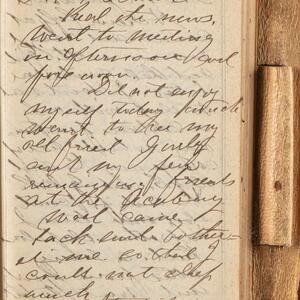 Read the news,
went to meeting
in afternoon and
fore noon.
Did not enjoy
myself today much
went to see my
old friend
and my few
remaining friends
at the Academy
Mail came
Jack and
at me so that I
could not sleep
much